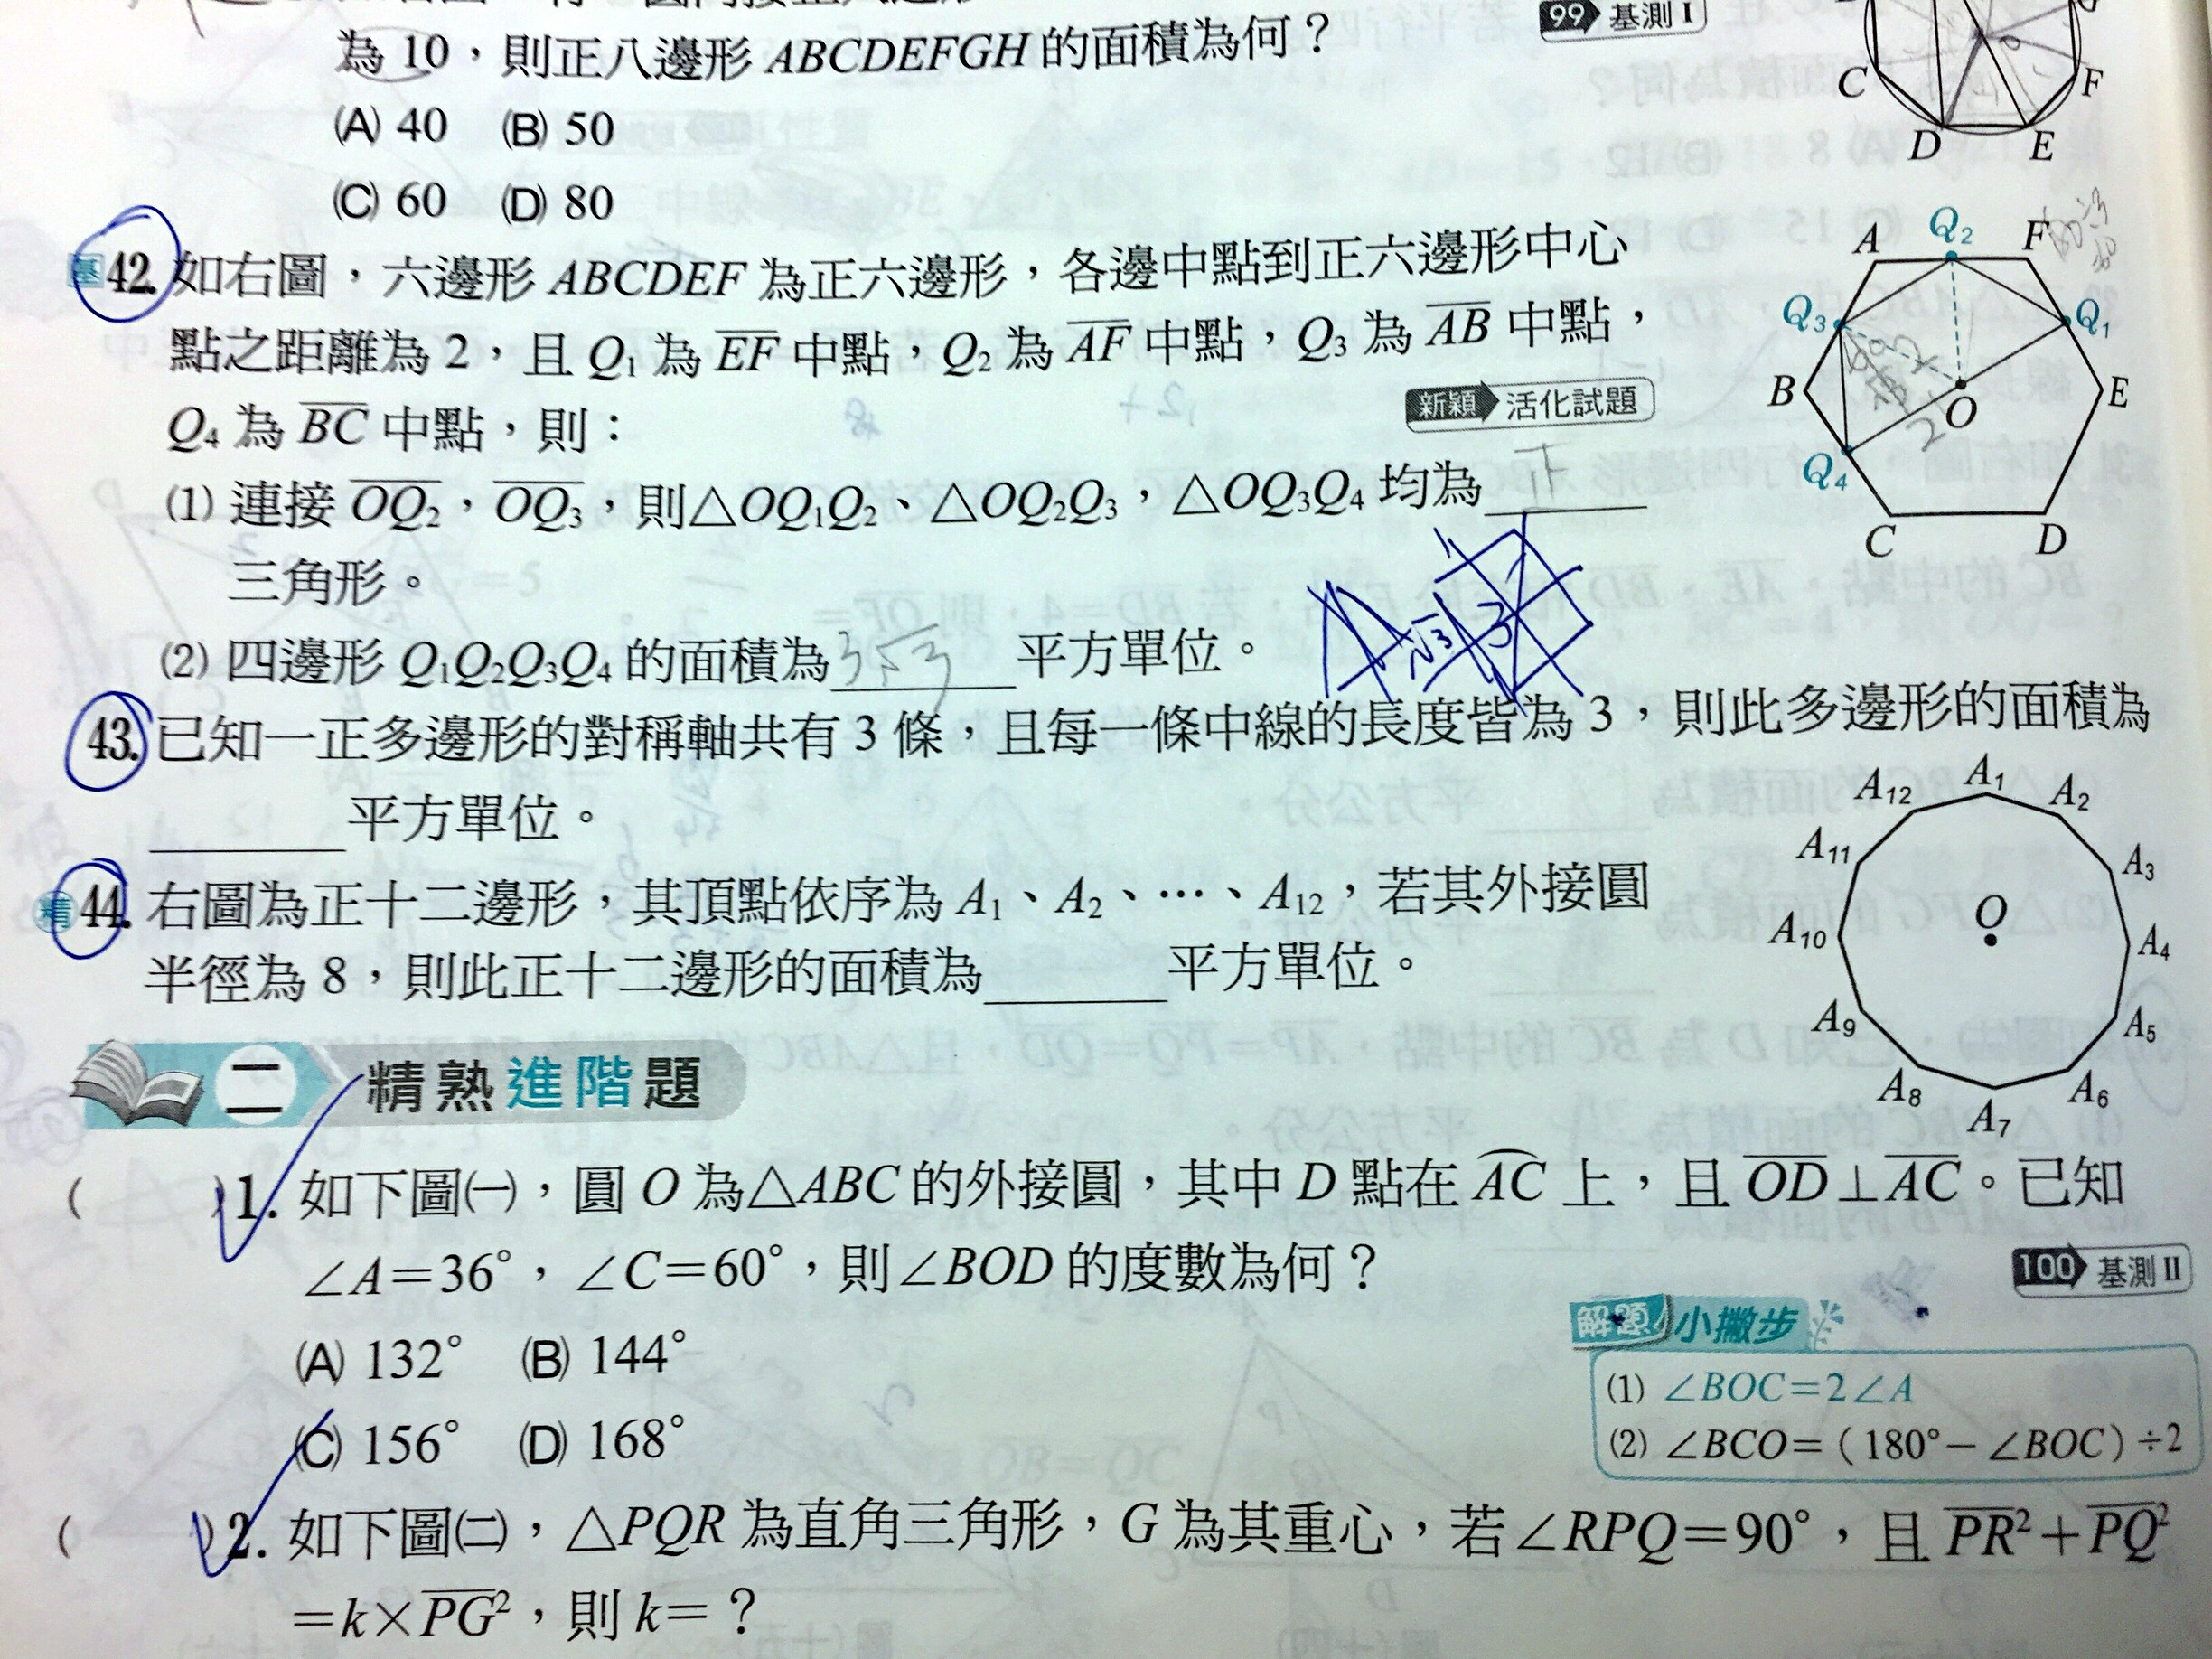 為 10，則正八邊形 ABCDEFGH 的面積為何？
99 基測 I
(A) 40 (B) 50
(C) 60 (D) 80
C F
D E
基 42. 如右圖，六邊形 ABCDEF 為正六邊形，各邊中點到正六邊形中心
點之距離為 2，且 Q₁ 為 E̅F̅ 中點，Q₂ 為 A̅F̅ 中點，Q₃ 為 A̅B̅ 中點，
Q₄ 為 B̅C̅ 中點，則：
新穎 活化試題
(1) 連接 O̅Q̅₂，O̅Q̅₃，則△OQ₁Q₂、△OQ₂Q₃，△OQ₃Q₄ 均為 正
三角形。
(2) 四邊形 Q₁Q₂Q₃Q₄ 的面積為 3√3 平方單位。
A Q₂ F
Q₃ Q₁
B O E
2
Q₄
C D
√3 3
43. 已知一正多邊形的對稱軸共有 3 條，且每一條中線的長度皆為 3，則此多邊形的面積為
______平方單位。
精 44. 右圖為正十二邊形，其頂點依序為 A₁、A₂、…、A₁₂，若其外接圓
半徑為 8，則此正十二邊形的面積為______平方單位。
A₁₂ A₁ A₂
A₁₁ A₃
O
A₁₀ A₄
A₉ A₅
A₈ A₇ A₆
二 精熟進階題
( )1. 如下圖㈠，圓 O 為△ABC 的外接圓，其中 D 點在 A͡C 上，且 O̅D̅⊥A̅C̅。已知
∠A＝36°，∠C＝60°，則∠BOD 的度數為何？
100 基測 II
(A) 132° (B) 144°
(C) 156° (D) 168°
解題 小撇步
(1) ∠BOC＝2∠A
(2) ∠BCO＝(180°－∠BOC)÷2
( )2. 如下圖㈡，△PQR 為直角三角形，G 為其重心，若∠RPQ＝90°，且 P̅R̅²＋P̅Q̅²
＝k×P̅G̅²，則 k＝？